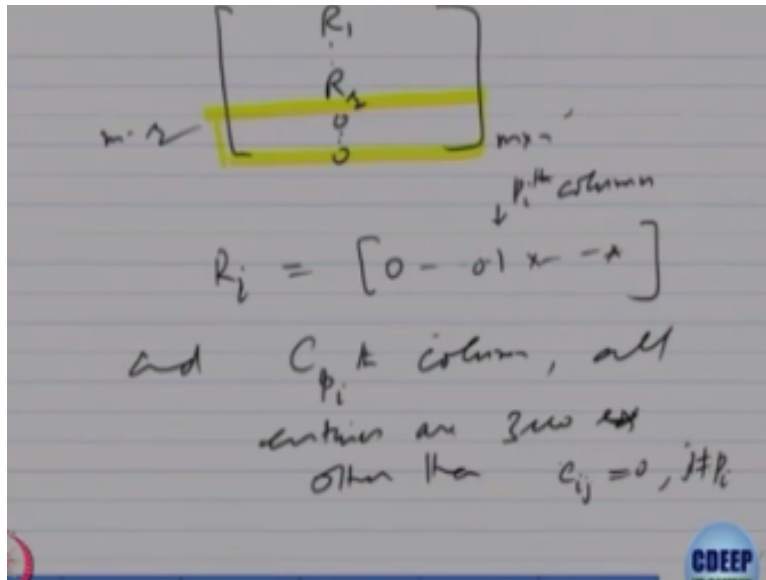 R1
R2
0
0
m-2
m×n
pi th column
Ri = [0 - 01 x - - x]
and Cpi th column, all
entries are zero ex
other than cij = 0, j≠pi
CDEEP